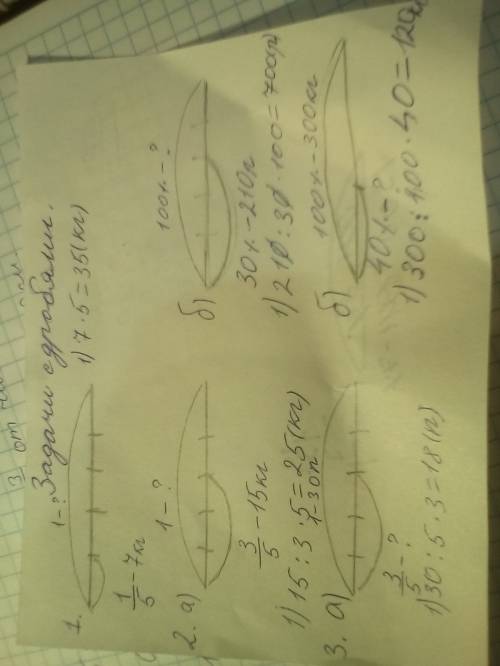 Задачи с дробями.
1. 1-?
1/5 - 7кг
1) 7·5=35(кг)
2. а) 1-?
3/5 - 15кг
1) 15:3·5=25(кг)
б) 100%-?
30%-210г
1) 210:30·100=700(г)
3. а) 1-30п
3/5 - ?
1) 30:5·3=18(п)
б) 100%-300кг
40%-?
1) 300:100·40=120